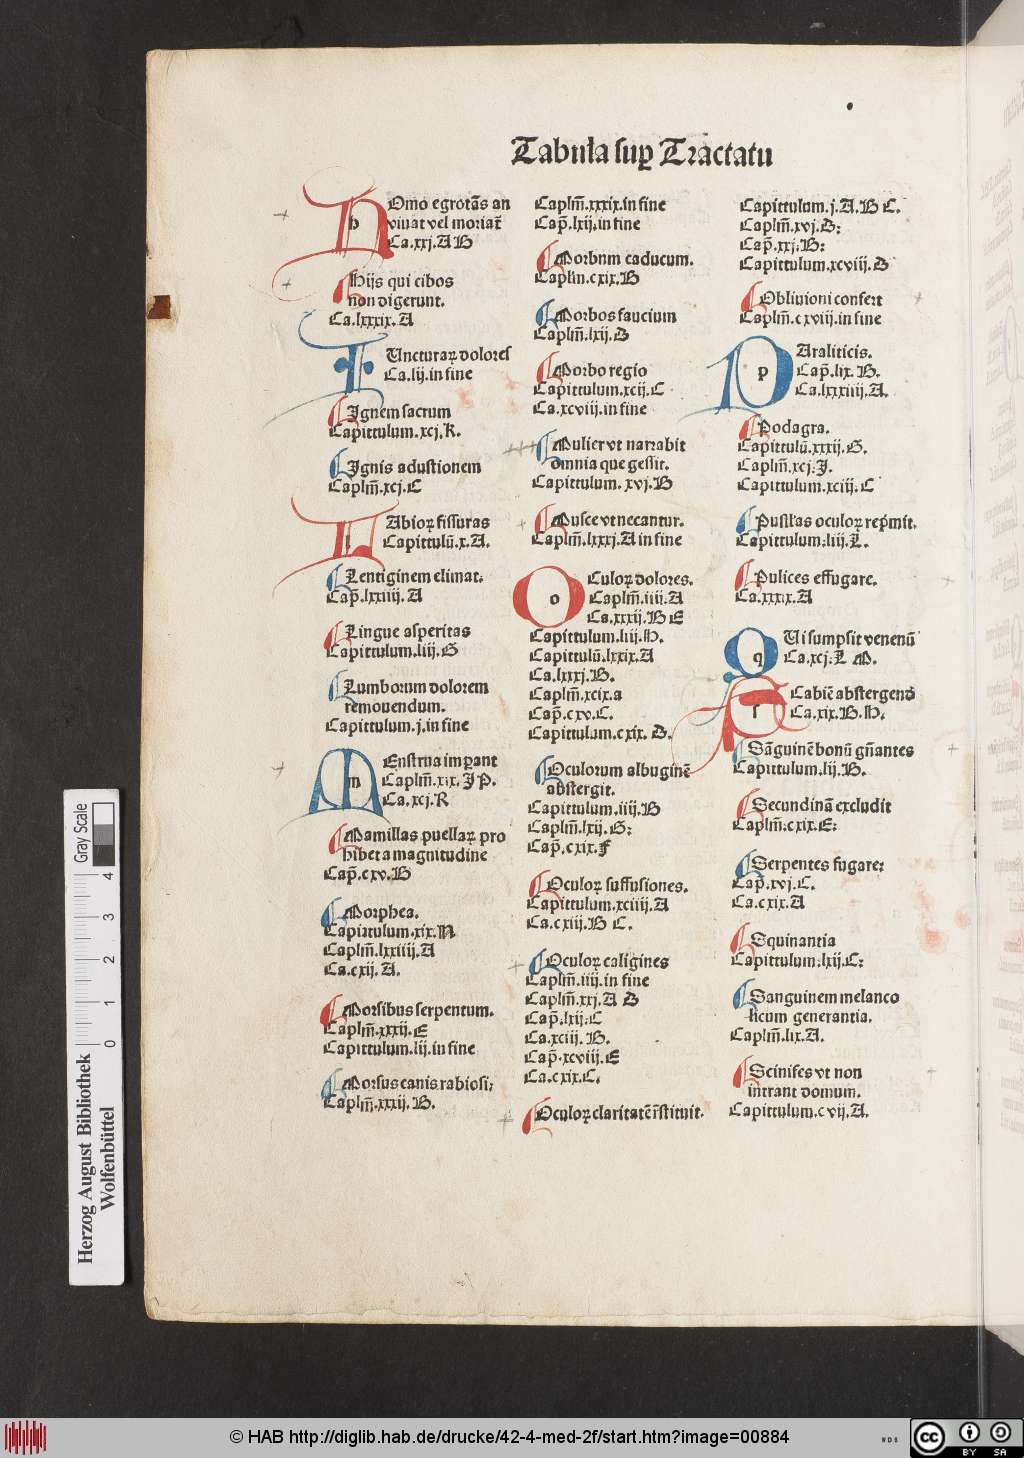 Tabula sup Tractatu
HOmo egrotãs an
viuat vel moriat̃
Ca.xxj.A B
Hijs qui cibos
non digerunt.
Ca.lxxxix.A
IUncturaꝝ dolores
Ca.lij.in fine
Ignem sacrum
Capittulum.xcj.K.
Ignis adustionem
Caplm̃.xcj.E
LAbioꝝ fissuras
Capittulũ.x.A.
Lentiginem elimat:
Cap̃.lxxiiij.A
Lingue asperitas
Capittulum.liij.G
Lumborum dolorem
remouendum.
Capittulum.j.in fine
MEnstrua impant
Caplm̃.xix.I P.
Ca.xcj.R
Mamillas puellaꝝ pro
hibet a magnitudine
Cap̃.cxv.B
Morphea.
Capittulum.xix.N
Caplm̃.lxxiiij.A
Ca.cxij.A.
Morsibus serpentum.
Caplm̃.xxxij.E
Capittulum.lij.in fine
Morsus canis rabiosi:
Caplm̃.xxxij.B.
Caplm̃.xxxix.in fine
Cap̃.lxij.in fine
Morbum caducum.
Caplm.cxix.B
Morbos faucium
Caplm̃.lxij.D
Morbo regio
Capittulum.xcij.C
Ca.xcviij.in fine
Mulier vt narrabit
omnia que gessit.
Capittulum.xvj.B
Musce vt necantur.
Caplm̃.lxxxj.A in fine
OCuloꝝ dolores.
Caplm̃.iiij.A
Ca.xxxij.B E
Capittulum.liij.H.
Capittulũ.lxxix.A
Ca.lxxxj.B.
Caplm̃.xcix.a
Cap̃.cxv.C.
Capittulum.cxix.D.
Oculorum albuginẽ
abstergit.
Capittulum.iiij.B
Caplm̃.lxij.G:
Cap̃.cxix.F
Oculoꝝ suffusiones.
Capittulum.xciiij.A
Ca.cxiij.B C.
Oculoꝝ caligines
Caplm̃.iiij.in fine
Caplm̃.xxj.A D
Cap̃.lxij.C
Ca.xciij.B.
Cap̃.xcviij.E
Ca.cxix.C.
Oculoꝝ claritatẽ r̃stituit.
Capittulum.j.A.B C.
Caplm̃.xvj.D:
Cap̃.xxj.B:
Capittulum.xcviij.D
Obliuioni confert
Caplm̃.cxviij.in fine
PAraliticis.
Cap̃.lix.B.
Ca.lxxxiiij.A.
Podagra.
Capittulũ.xxxij.G.
Caplm̃.xcj.I.
Capittulum.xciij.C
Pustlas oculoꝝ rep̃mit.
Capittulum.liij.L.
Pulices effugare.
Ca.xxxix.A
QUi sumpsit venenũ
Ca.xcj.L M.
SCabiẽ abstergend
Ca.xix.B.H.
Sãguinẽ bonũ gñantes
Capittulum.lij.B.
Secundinã excludit
Caplm̃.cxix.E:
Serpentes fugare:
Cap̃.xvj.C.
Ca.cxix.A
Squinantia
Capittulum.lxij.C:
Sanguinem melanco
licum generantia.
Caplm̃.lix.A.
Scinifes vt non
intrant domum.
Capittulum.cvij.A.
Herzog August Bibliothek
Wolfenbüttel
0 1 2 3 4
Gray Scale
© HAB http://diglib.hab.de/drucke/42-4-med-2f/start.htm?image=00884
WDB
cc
BY SA